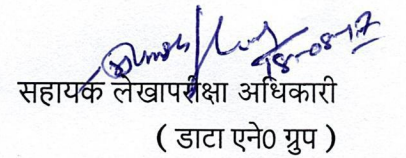 18-08-17
सहायक लेखापरीक्षा अधिकारी
( डाटा एने0 ग्रुप )